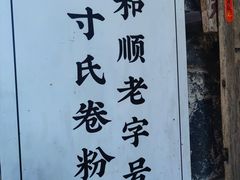 和顺老字号
寸氏卷粉